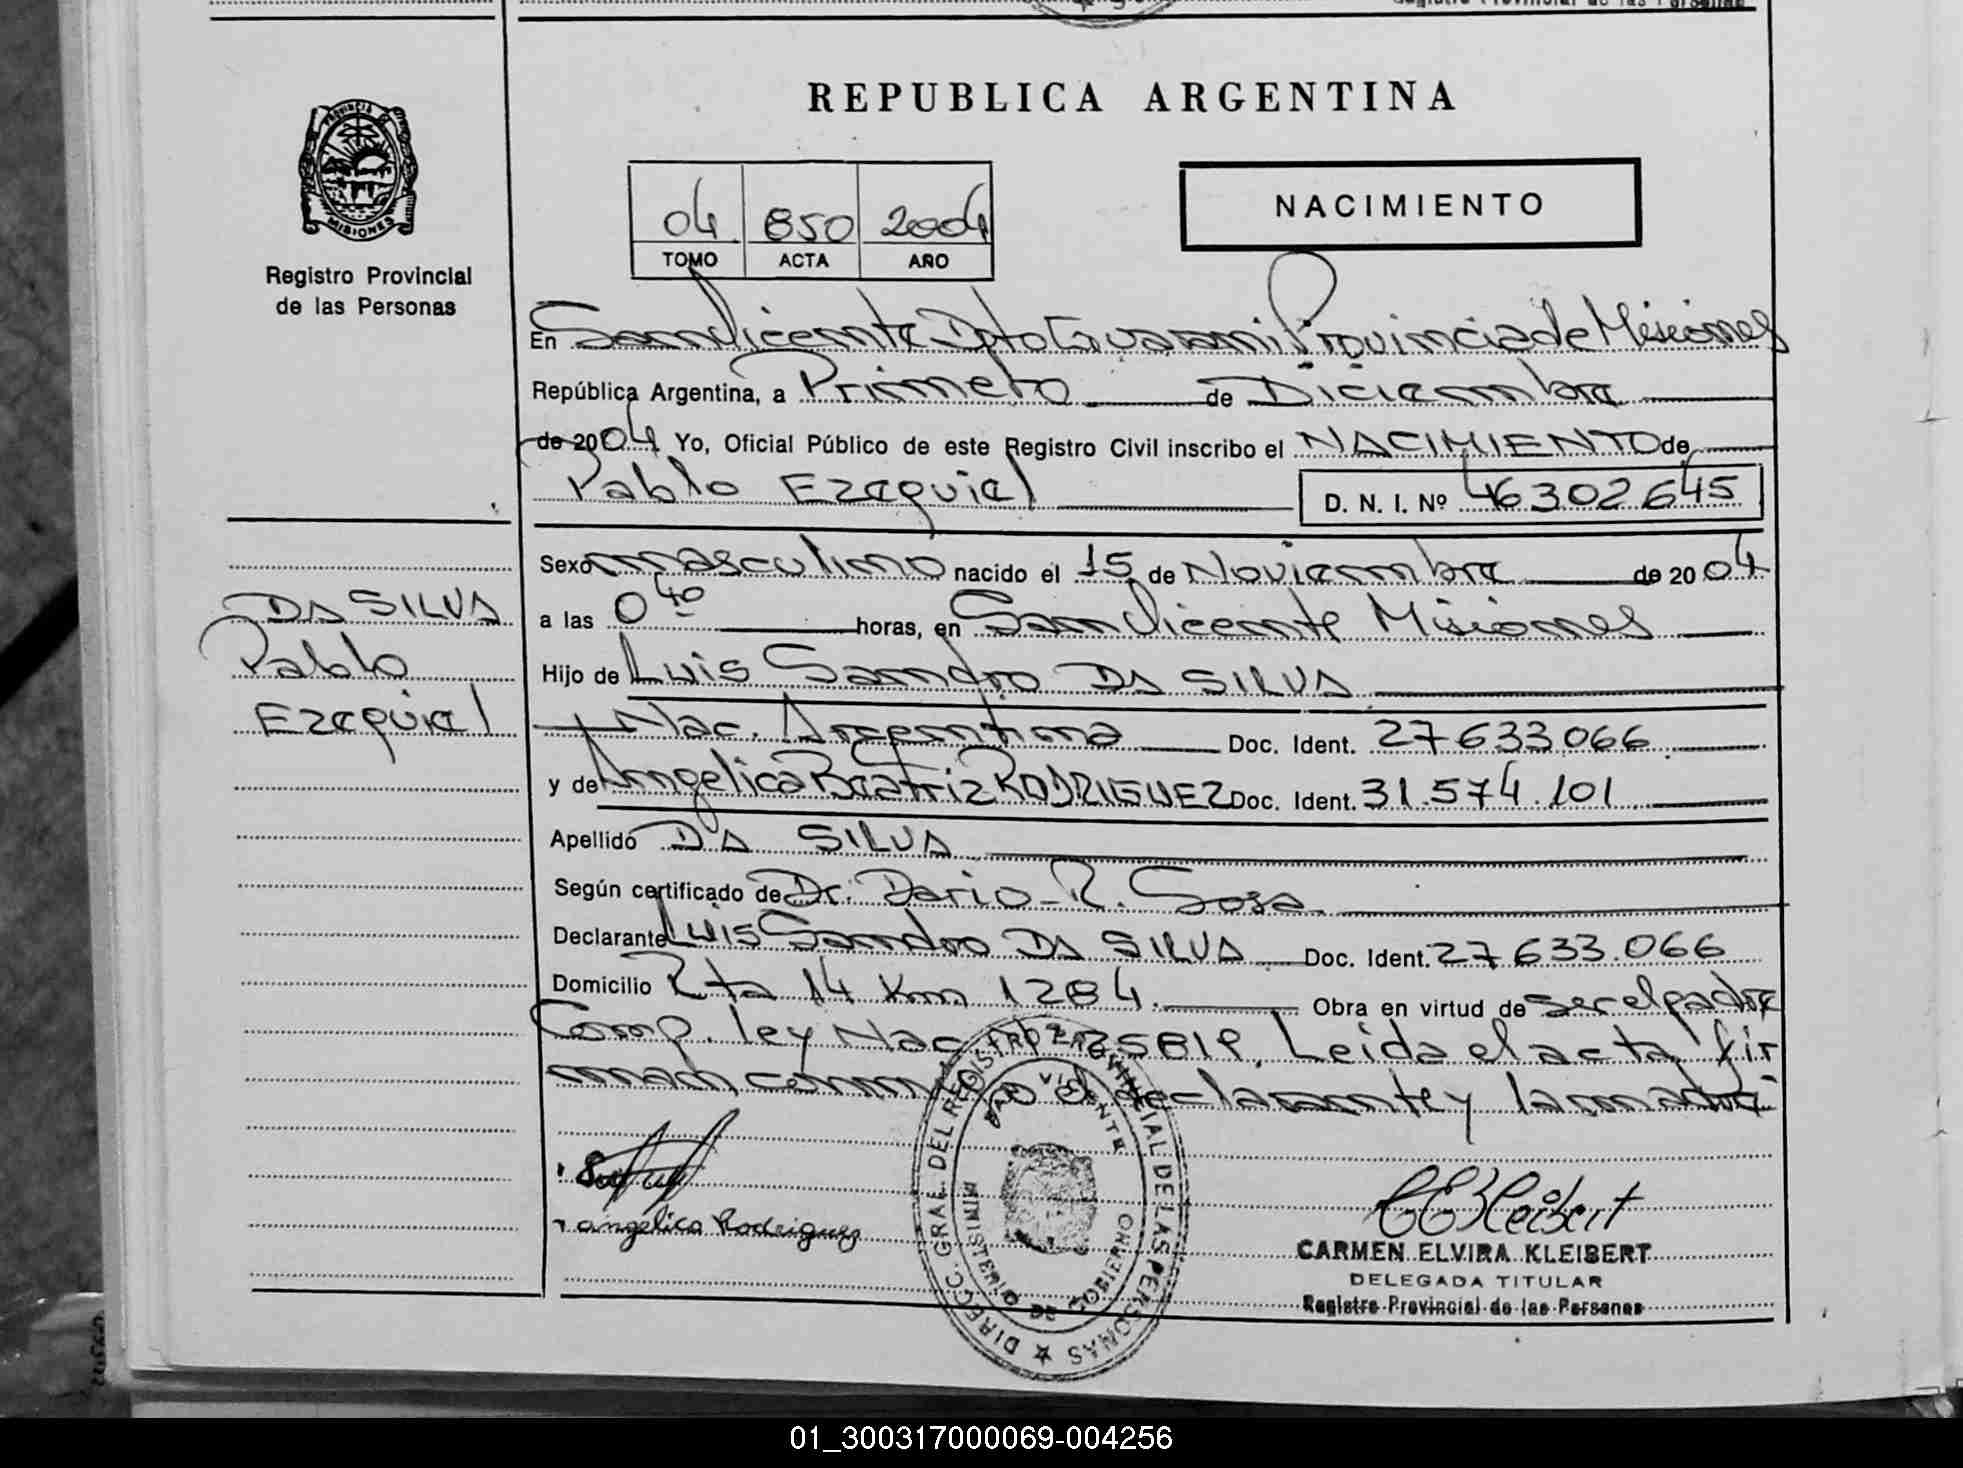 REPUBLICA ARGENTINA
PROVINCIA
MISIONES
Registro Provincial
de las Personas
04 850 2004
TOMO ACTA AÑO
NACIMIENTO
En San Vicente Dpto Guarani Provincia de Misiones
República Argentina, a Primero de Diciembre
de 2004 Yo, Oficial Público de este Registro Civil inscribo el NACIMIENTO de
Pablo Ezequiel D. N. I. Nº 46302645
Sexo masculino nacido el 15 de Noviembre de 2004
a las 0 40 horas, en San Vicente Misiones
Hijo de Luis Sandro DA SILVA
Nac. Argentina Doc. Ident. 27633066
y de Angelica Beatriz RODRIGUEZ Doc. Ident. 31.574.101
Apellido DA SILVA
Según certificado de Dr. Dario R. Sosa
Declarante Luis Sandro DA SILVA Doc. Ident. 27633.066
Domicilio Rta 14 Km 1284. Obra en virtud de ser el padre
Comp. ley Nac. 25819. Leida el acta fir
man conmigo el declarante y la madre
DA SILVA
Pablo
Ezequiel
angelica Rodriguez
DIRECC. GRAL. DEL REGISTRO PROVINCIAL DE LAS PERSONAS
SAN VICENTE
MINISTERIO DE GOBIERNO
CEKleibert
CARMEN ELVIRA KLEIBERT
DELEGADA TITULAR
Registro Provincial de las Personas
01_300317000069-004256